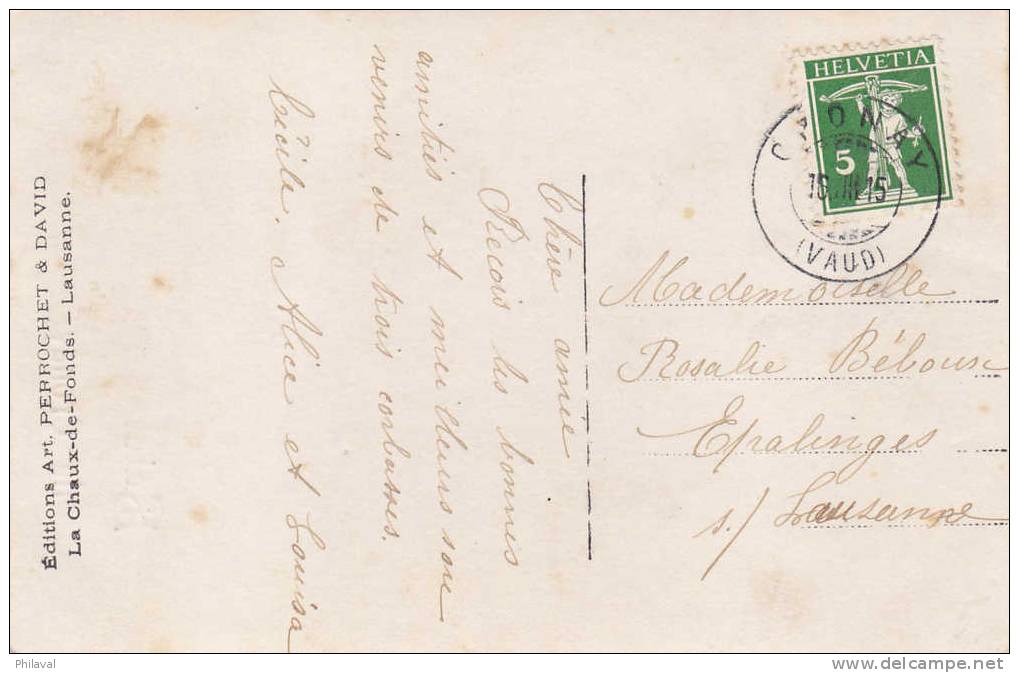 Éditions Art. PERROCHET & DAVID
La Chaux-de-Fonds. — Lausanne.
Chère amie
Recois les bonnes
amitiés et meilleurs sou
venirs de trois corbasses.
Cécile. Alice et Louisa
HELVETIA
5
(VAUD)
Mademoiselle
Rosalie Béboux
Epalinges
s./ Lausanne
Philaval
www.delcampe.net